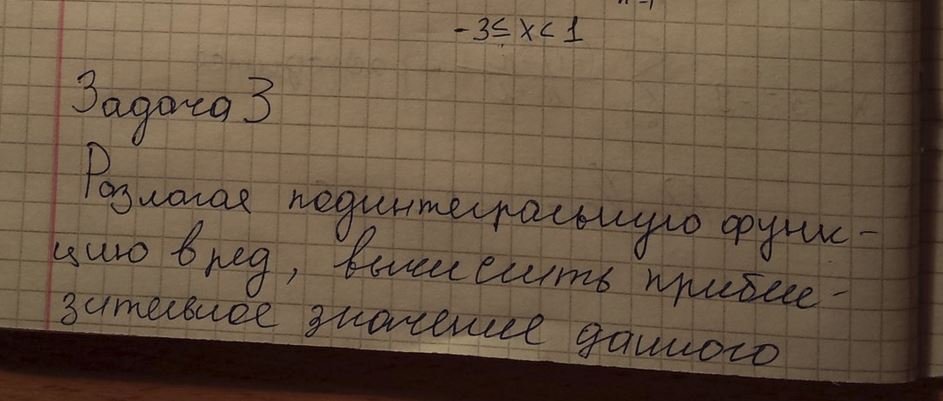 -3≤x<1
Задача 3
Разлагая подинтегральную функ-
цию в ряд, вычислить прибли-
зительное значение данного